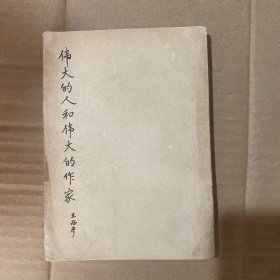 伟大的人和伟大的作家
王西彦